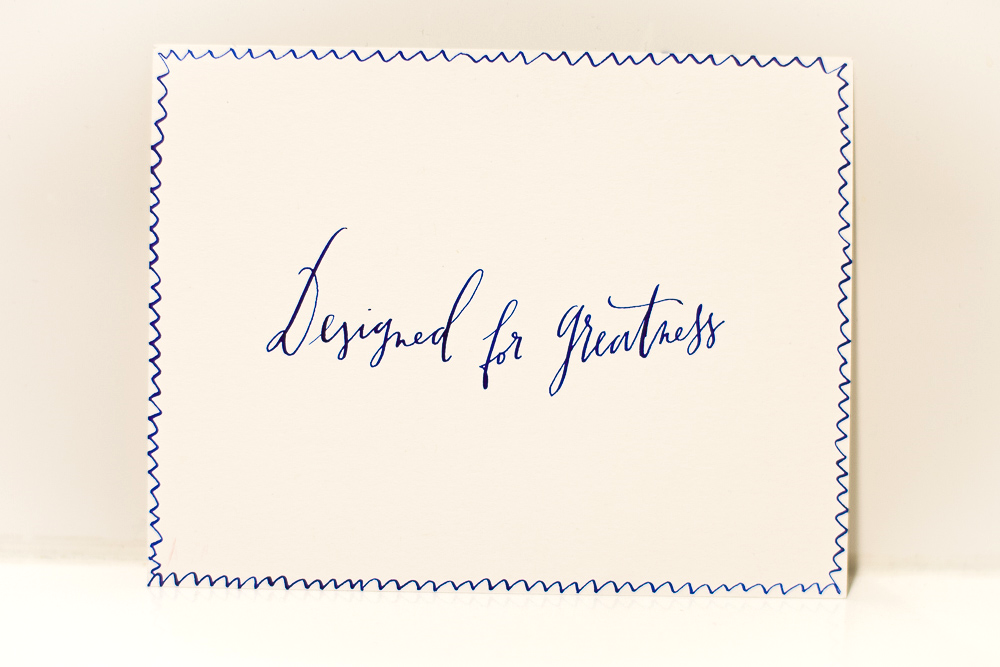 Designed for greatness